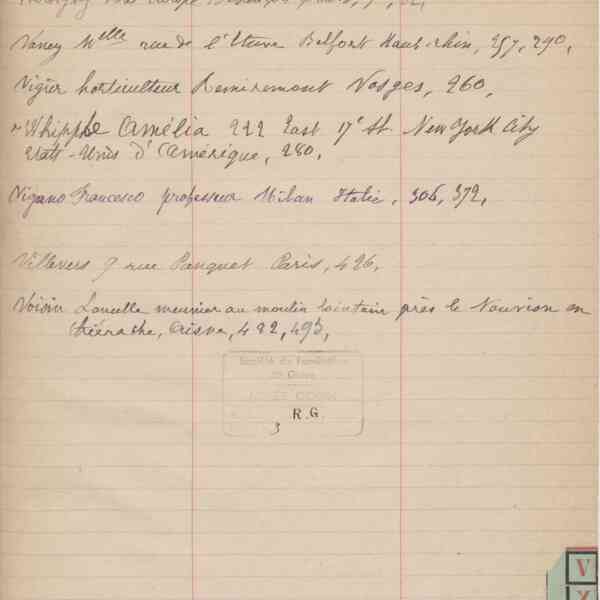 Vaney Mlle rue de l'Etuve Belfort Haut-rhin, 257, 290,
Vigier horticulteur Remiremont Vosges, 260,
Whipple Amélia 222 East 17e St. New York City
Etats-Unis d'Amérique, 280,
Vigano Francesco professeur Milan Italie, 306, 372,
Villevers 9 rue Pauquet Paris, 426,
Voisin Lancelle meunier au moulin lointain près le Nouvion en
thiérache, Aisne, 482, 493,
Société du Familistère
de Guise
R.G.
3
V
X